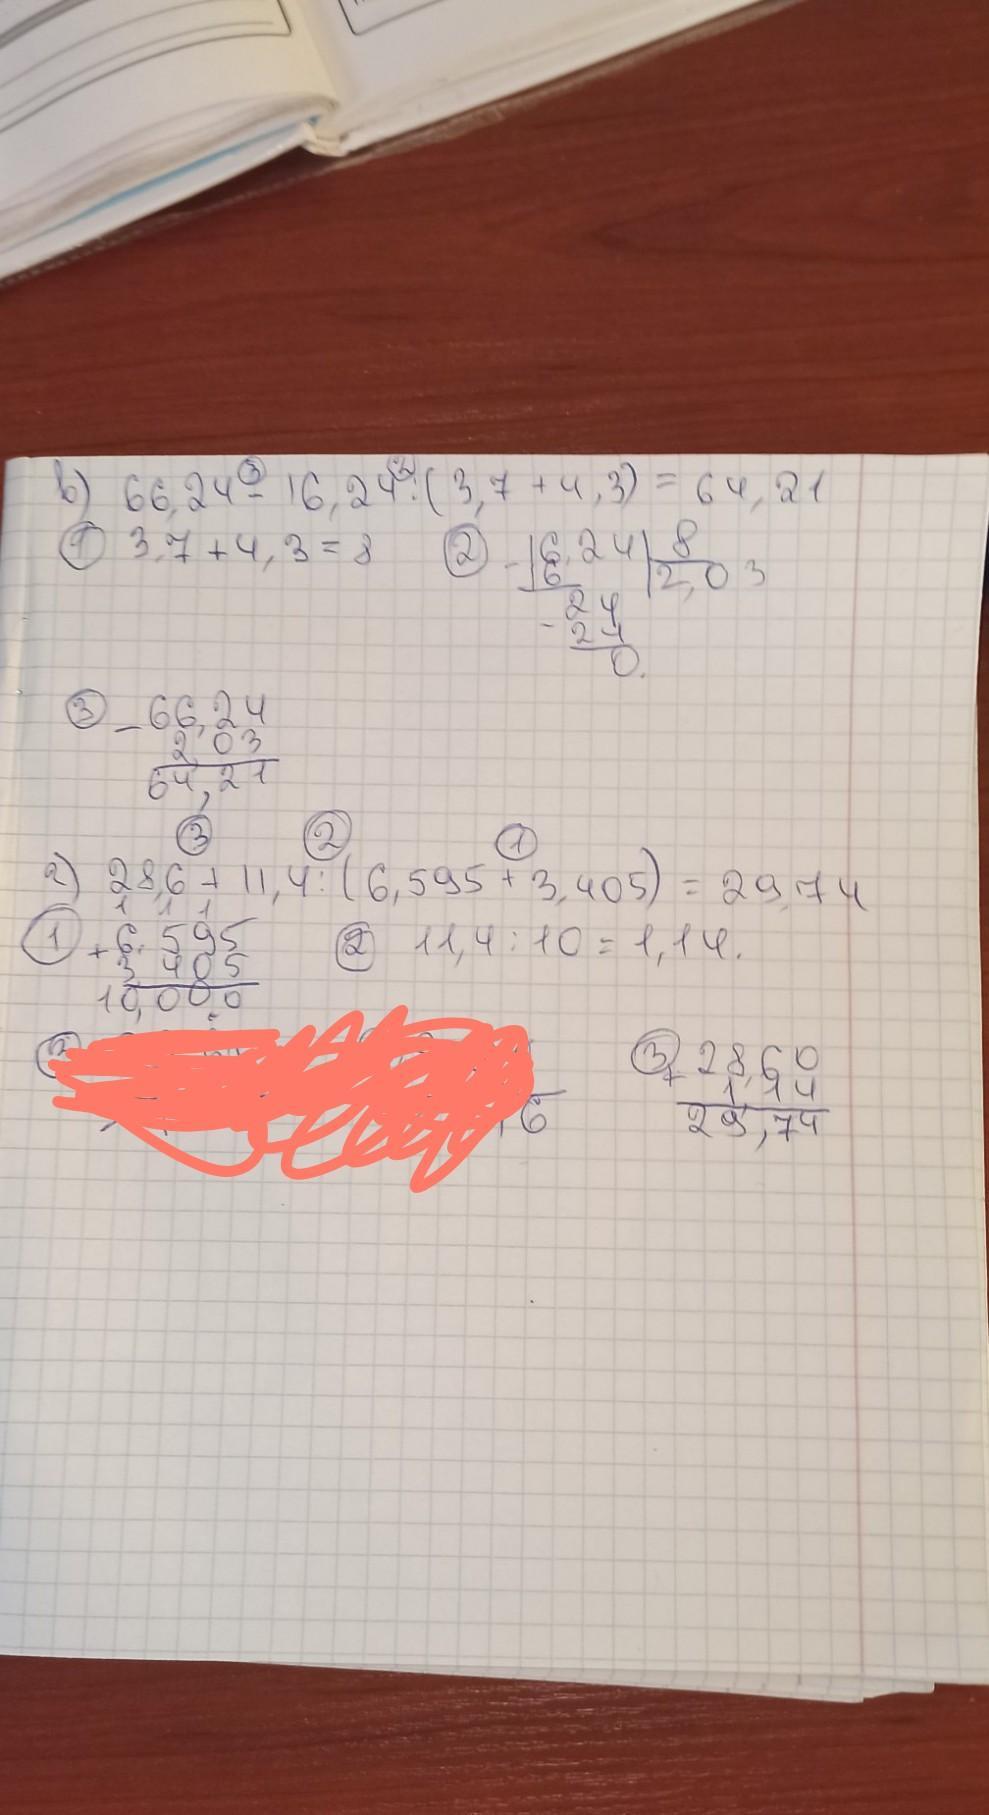 в) 66,24 - 16,24 : (3,7 + 4,3) = 64,21
③ ②
① 3,7 + 4,3 = 8 ② - 16,24 | 8
16 2,03
24
- 24
0.
③ - 66,24
2 03
64,21
③ ② ①
г) 28,6 + 11,4 : (6,595 + 3,405) = 29,74
1 1 1
① + 6,595 ② 11,4 : 10 = 1,14.
3 405
10,000
③ + 28,60
1 14
6 29,74